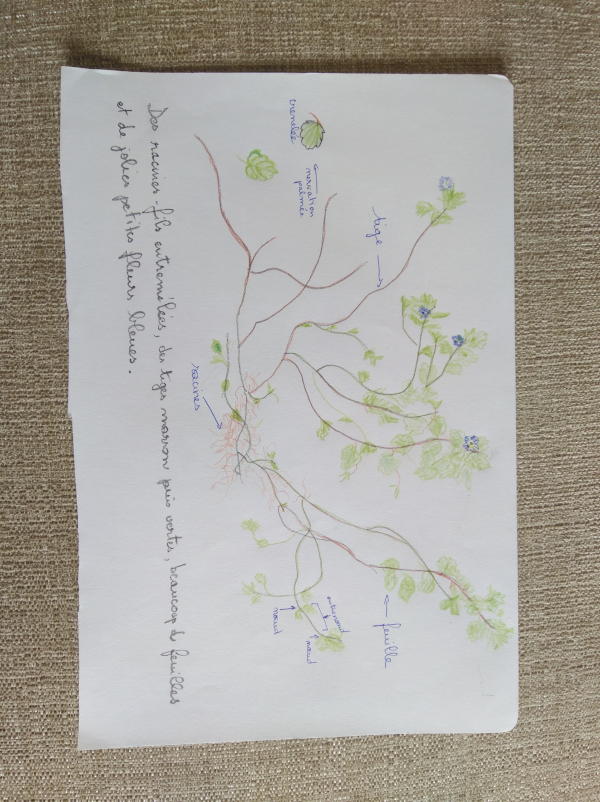 crénelée
nervation
palmée
tige
racines
feuille
entrenœud
nœud
nœud
Des racines-fils entremêlées, des tiges marron puis vertes, beaucoup de feuilles
et de jolies petites fleurs bleues.